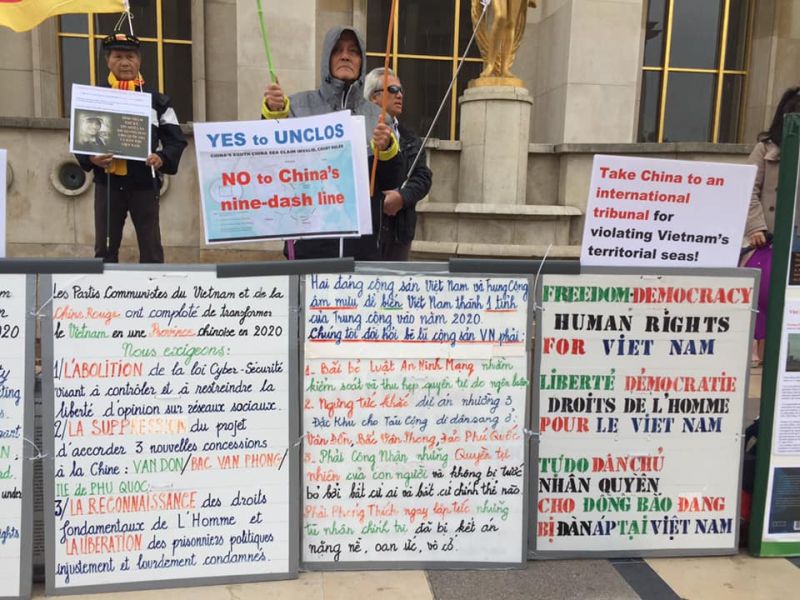 YES to UNCLOS
CHINA'S SOUTH CHINA SEA CLAIM INVALID, COURT RULES
NO to China's
nine-dash line
Take China to an
international
tribunal for
violating Vietnam's
territorial seas!
Les Partis Communistes du Vietnam et de la
Chine Rouge ont comploté de transformer
le Vietnam en une Province chinoise en 2020
Nous exigeons:
1/L'ABOLITION de la loi Cyber-Sécurité
visant à contrôler et à restreindre la
liberté d'opinion sur réseaux sociaux.
2/LA SUPPRESSION du projet
d'accorder 3 nouvelles concessions
à la Chine: VAN DON/BAC VAN PHONG/
ILE de PHU QUOC
3/LA RECONNAISSANCE des droits
fondamentaux de L'Homme et
LA LIBERATION des prisonniers politiques
injustement et lourdement condamnés.
Hai đảng cộng sản Việt Nam và Trung Cộng
âm mưu để biến Việt Nam thành 1 tỉnh
của Trung cộng vào năm 2020.
Chúng tôi đòi hỏi bè lũ cộng sản VN phải:
1- Bãi bỏ Luật An Ninh Mạng nhằm
kiểm soát và thu hẹp quyền tự do ngôn luận
2- Ngừng tức khắc dự án nhượng 3
Đặc Khu cho Tàu Cộng di dân sang ở:
Vân Đồn, Bắc Vân Phong, Đảo Phú Quốc
3- Phải Công Nhận những Quyền tự
nhiên của con người và không bị tước
bỏ bởi bất cứ ai và bất cứ chính thể nào
Phải Phóng Thích ngay lập tức những
tù nhân chính trị đã bị kết án
nặng nề, oan ức, vô cớ.
FREEDOM-DEMOCRACY
HUMAN RIGHTS
FOR VIET NAM
LIBERTÉ DÉMOCRATIE
DROITS DE L'HOMME
POUR LE VIET NAM
TỰ DO DÂN CHỦ
NHÂN QUYỀN
CHO ĐỒNG BÀO ĐANG
BỊ ĐÀN ÁP TẠI VIỆT NAM